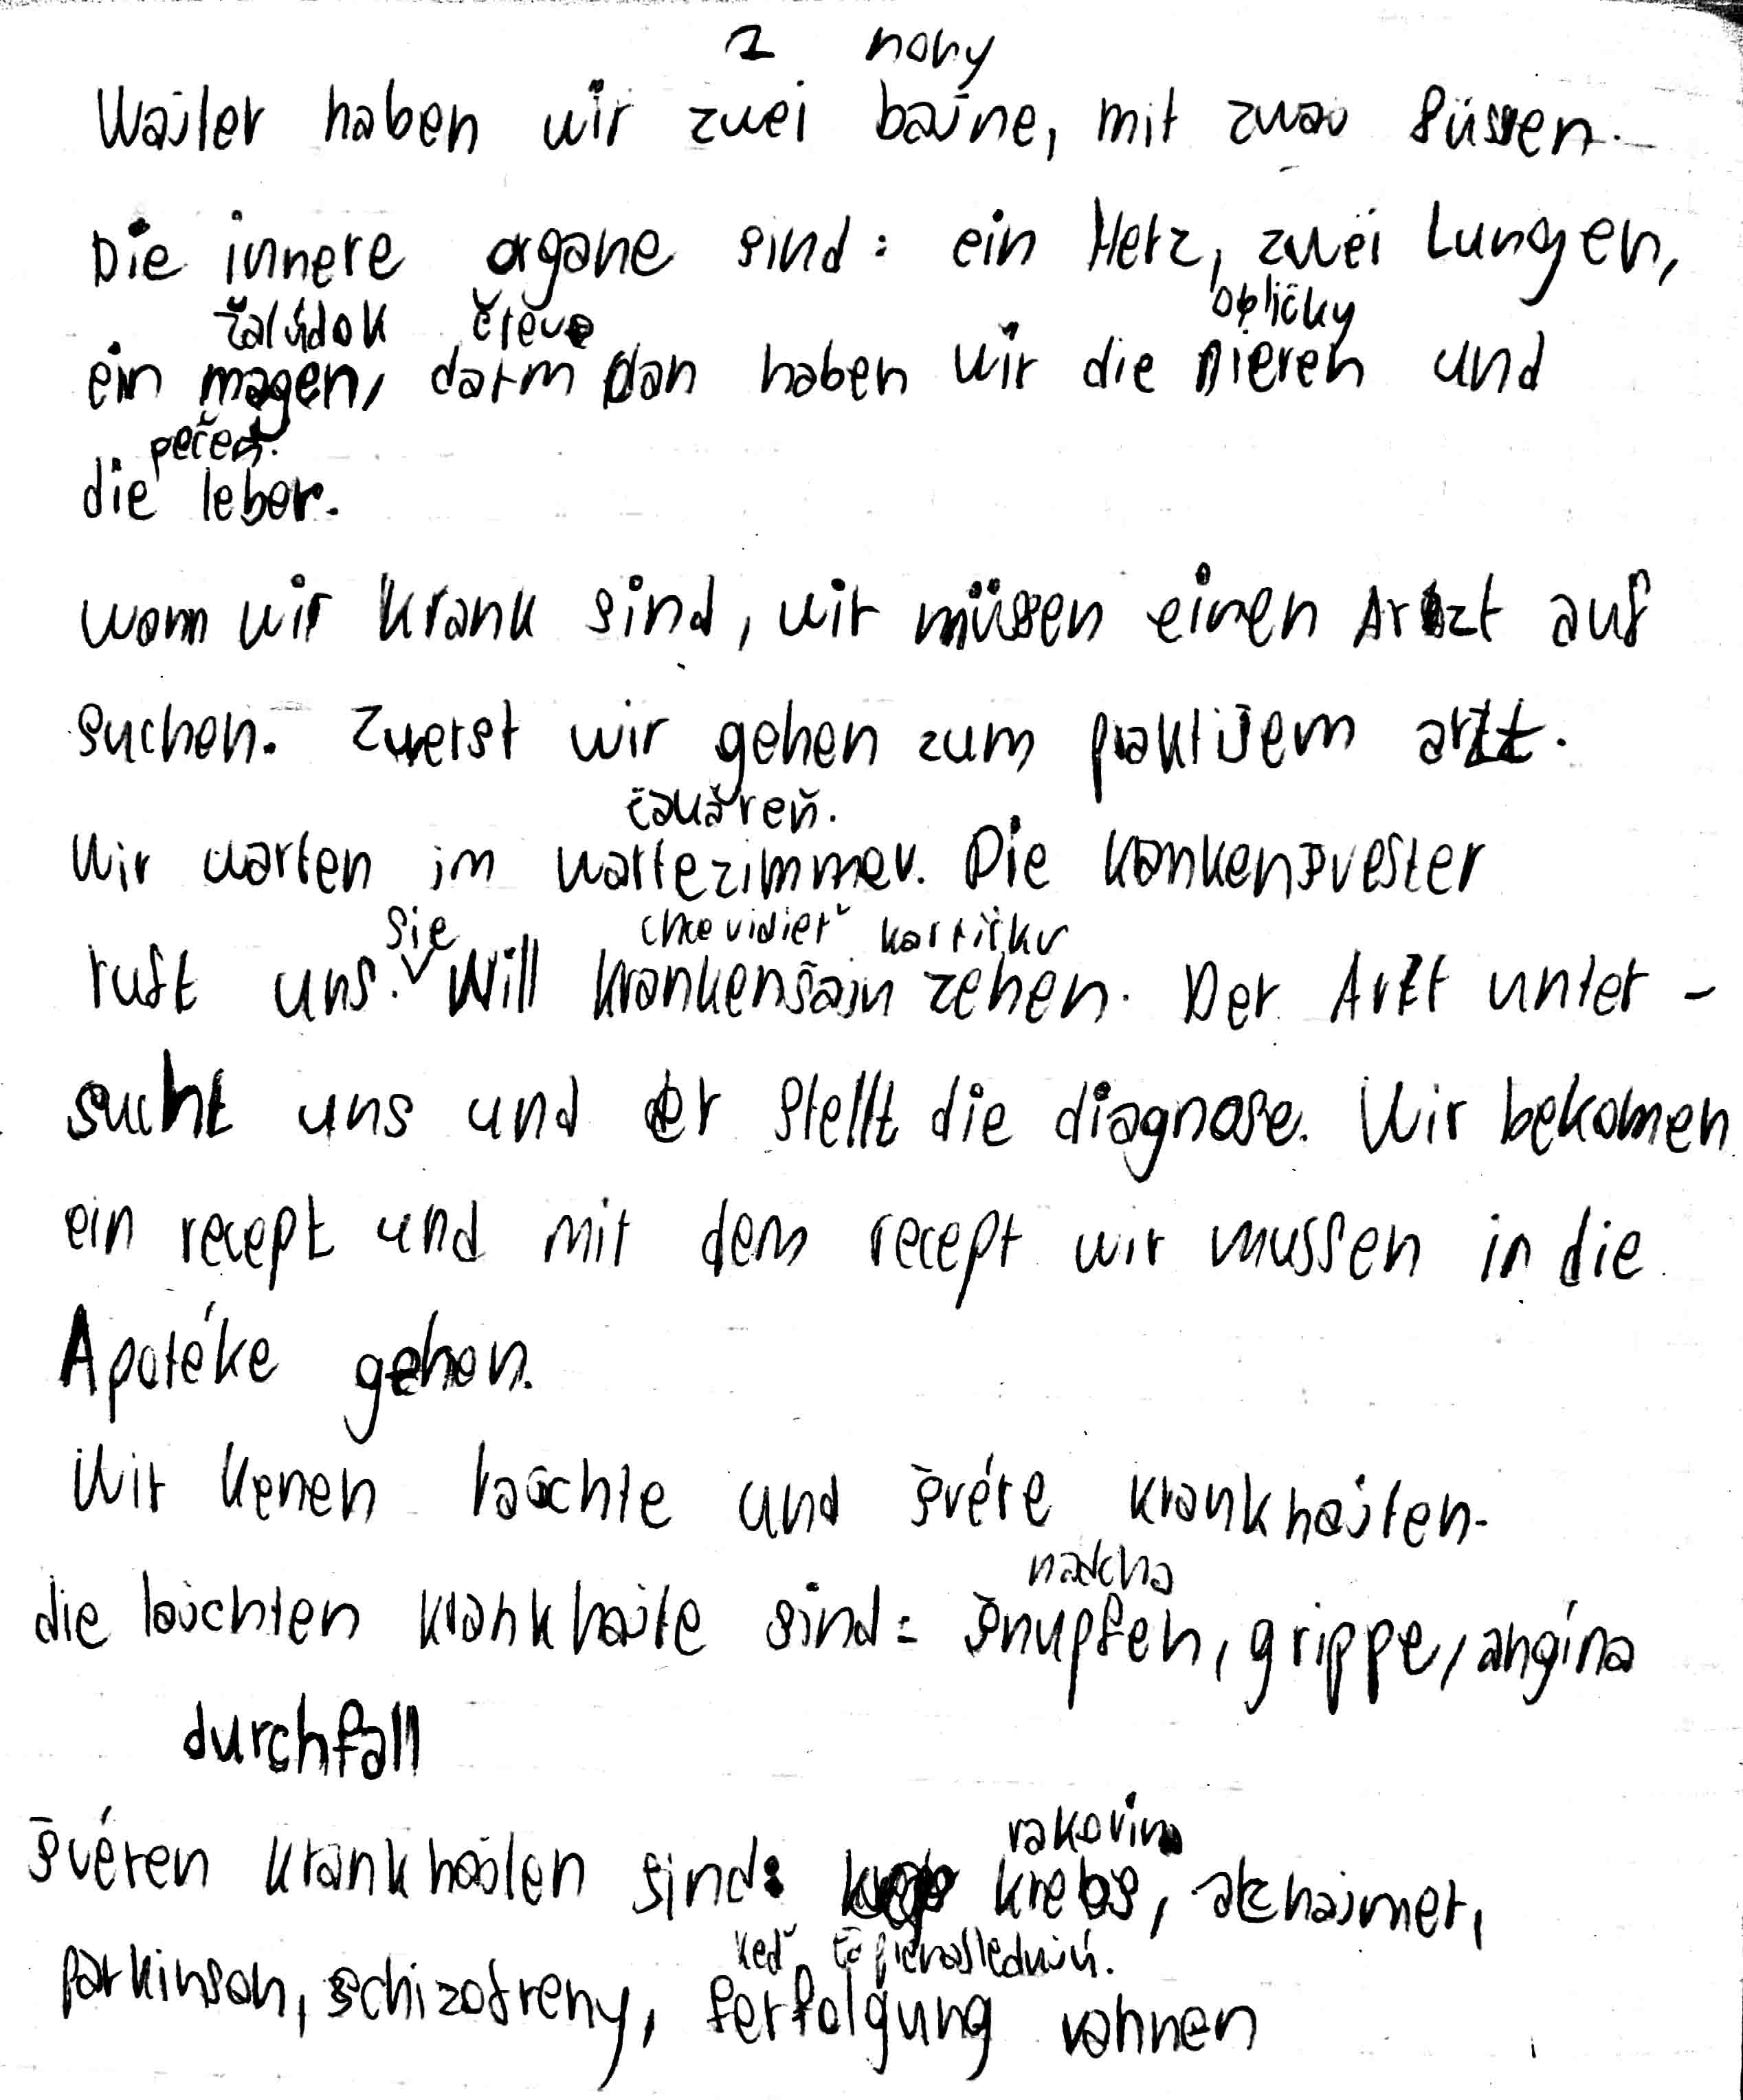 2 nohy
Wajter haben wir zwei bajne, mit zwaj füssen.
Die innere organe sind: ein Herz, zwei Lungen,
žalúdok črěvo obličky
ein magen, darm dan haben wir die nieren und
pečeň.
die leber.
wonn wir krank sind, wir müssen einen Arzt auf
suchen. Zuerst wir gehen zum praktišem arzt.
čakáreň.
Wir warten im wartezimmer. Die krankenšvester
Sie chce vidieť kartičku
ruft uns. Will krankenšajn zehen. Der Arzt unter -
sucht uns und er stellt die diagnose. Wir bekomen
ein recept und mit dem recept wir mussen in die
Apotéke gehen.
Wir kenen lajchte und švére krankhajten.
nádcha
die lajchten krankhajte sind: šnupfen, grippe, angína
durchfall
švéren krankhajten sind: rakovina
krebs, alchajmer,
keď ťa prenasledujú.
parkinson, schizofreny, ferfolgung vahnen